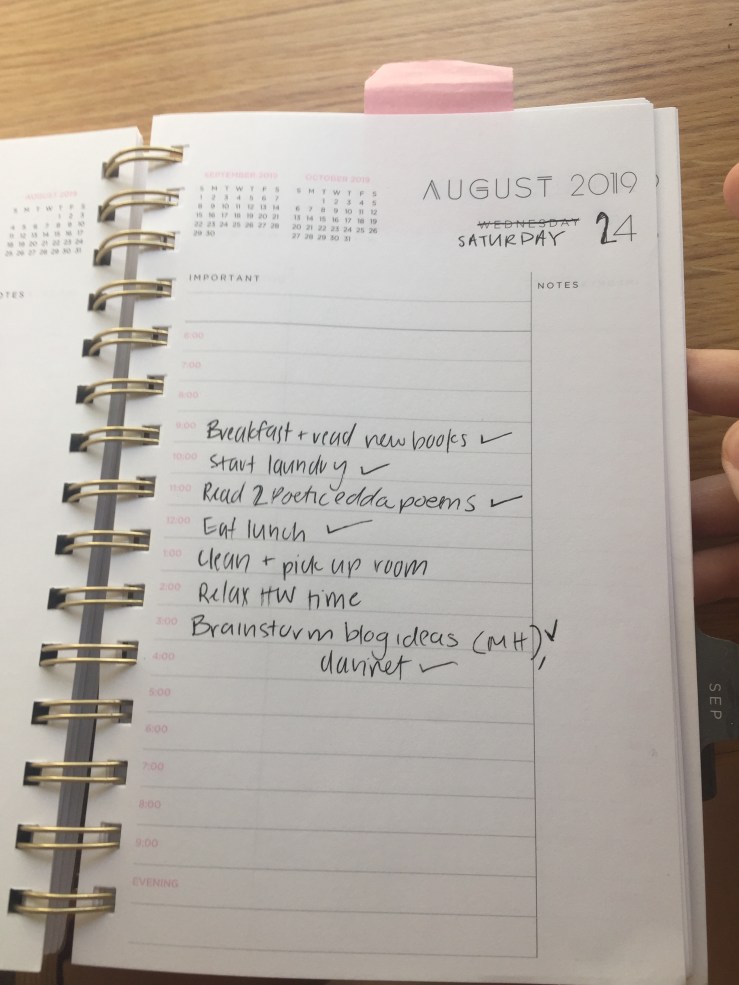 AUGUST 2019
S M T W T F S
1 2 3
4 5 6 7 8 9 10
11 12 13 14 15 16 17
18 19 20 21 22 23 24
25 26 27 28 29 30 31
NOTES
SEPTEMBER 2019
S M T W T F S
1 2 3 4 5 6 7
8 9 10 11 12 13 14
15 16 17 18 19 20 21
22 23 24 25 26 27 28
29 30
OCTOBER 2019
S M T W T F S
1 2 3 4 5
6 7 8 9 10 11 12
13 14 15 16 17 18 19
20 21 22 23 24 25 26
27 28 29 30 31
AUGUST 2019
WEDNESDAY
SATURDAY 24
IMPORTANT
NOTES
6:00
7:00
8:00
9:00 Breakfast + read new books ✓
10:00 Start laundry ✓
11:00 Read 2 Poetic edda poems ✓
12:00 Eat lunch ✓
1:00 Clean + pick up room
2:00 Relax HW time
3:00 Brainstorm blog ideas (MH), ✓
4:00 clarinet ✓
5:00
6:00
7:00
8:00
9:00
EVENING
SEP